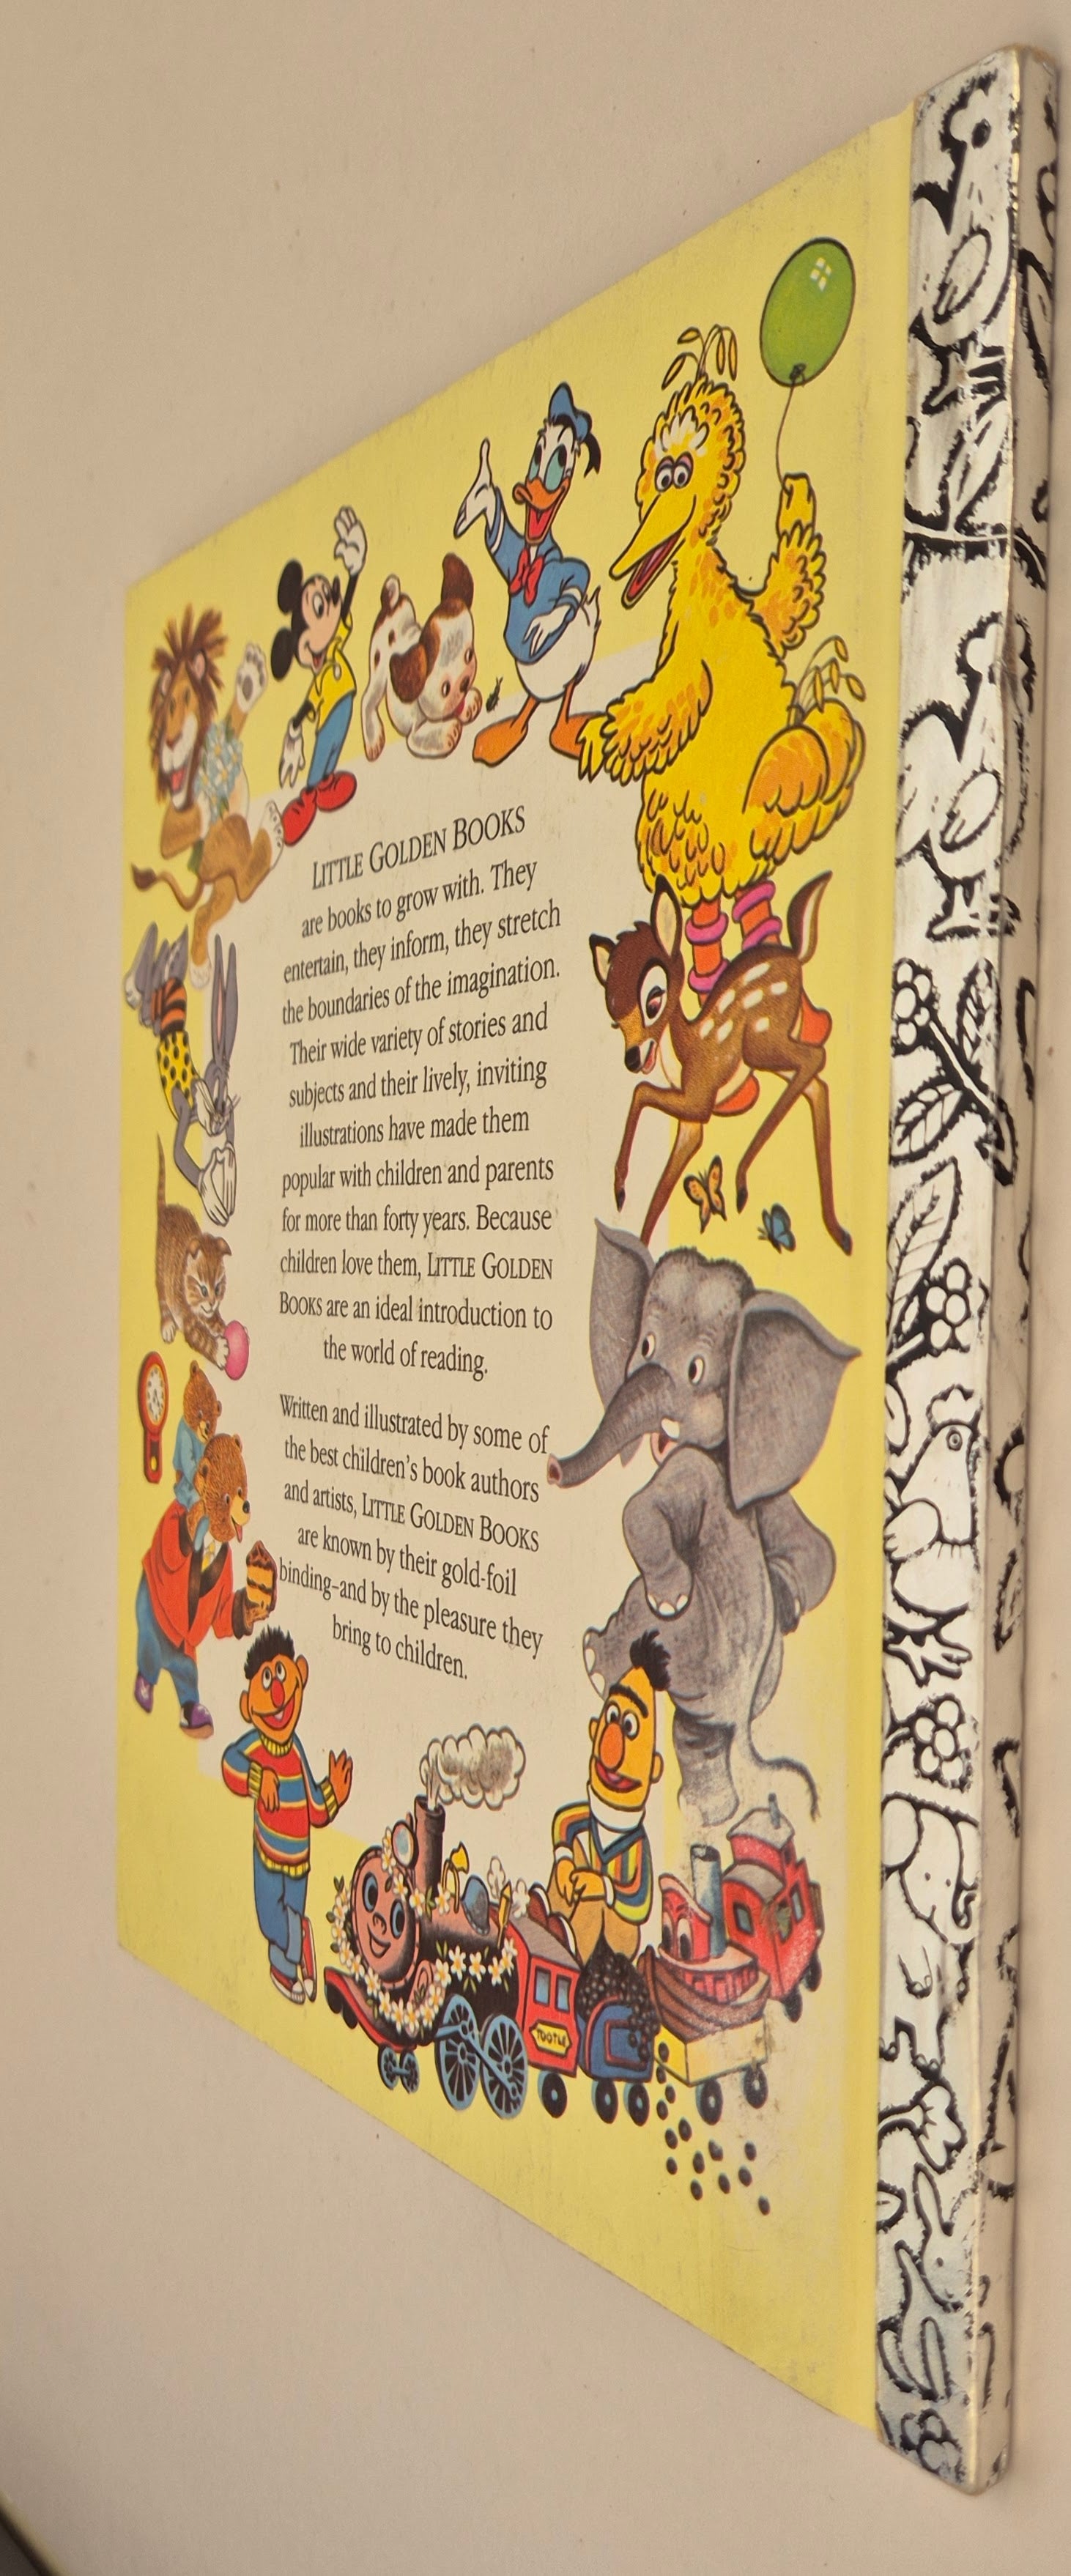 LITTLE GOLDEN BOOKS
are books to grow with. They
entertain, they inform, they stretch
the boundaries of the imagination.
Their wide variety of stories and
subjects and their lively, inviting
illustrations have made them
popular with children and parents
for more than forty years. Because
children love them, LITTLE GOLDEN
BOOKS are an ideal introduction to
the world of reading.
Written and illustrated by some of
the best children's book authors
and artists, LITTLE GOLDEN BOOKS
are known by their gold-foil
binding–and by the pleasure they
bring to children.
TOOTLE